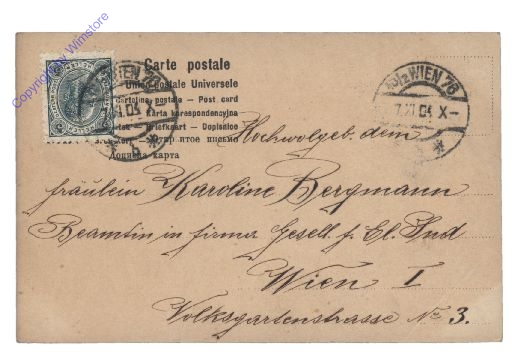 Copyright by Wimstore
Carte postale
Union postale Universele
Cartolina postale – Post card
Karta korespondencyjna
Briefkart – Dopisnice
письмо
карта
WIEN
XI.04 X–
6 *
WIEN 76
7.XI.04 X–
*
Hochwolgeb. dem
fräulein Karoline Bergmann
Beamtin in firma Gesell. f. El. Ind
Wien I
Volksgartenstrasse No 3.